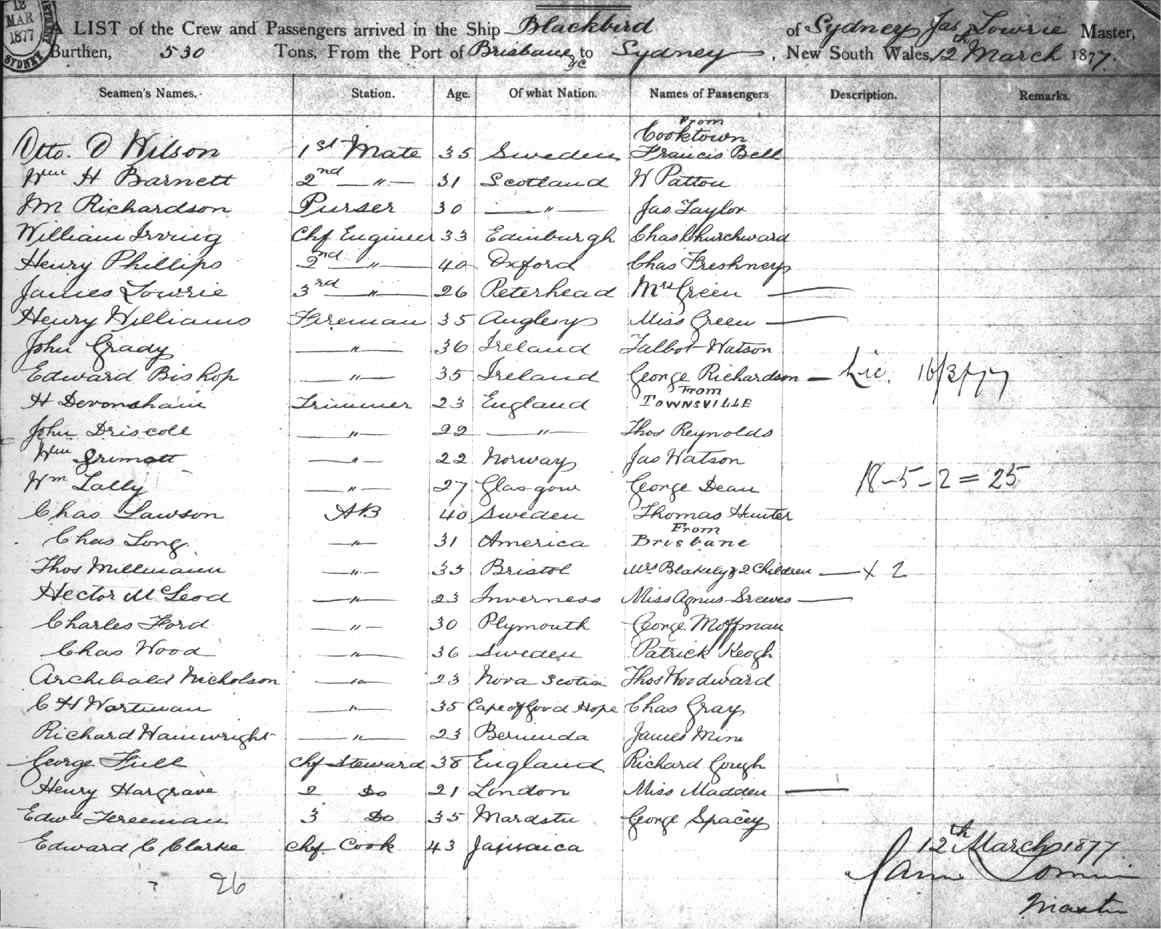 12
MAR
1877
SYDNEY
A LIST of the Crew and Passengers arrived in the Ship Blackbird of Sydney Jas Lowrie Master,
Burthen, 530 Tons, From the Port of Brisbane &c to Sydney, New South Wales, 12 March 1877.
Seamen's Names. Station. Age. Of what Nation. Names of Passengers Description. Remarks.
From
Cooktown
Otto. O Wilson 1st Mate 35 Sweden Francis Bell
Wm H Barnett 2nd —〃— 31 Scotland W Patton
JM Richardson Purser 30 —〃— Jas Taylor
William Irving Chf Engineer 33 Edinburgh Chas Churchward
Henry Phillips 2nd 〃 40 Oxford Chas Freshney
James Lowrie 3rd 〃 26 Peterhead Mrs Green —
Henry Williams Fireman 35 Anglesy Miss Green —
John Grady —〃— 36 Ireland Talbot Watson
Edward Bishop —〃— 35 Ireland George Richardson — Lic. 16/3/77
From
H Devonshair Trimmer 23 England TOWNSVILLE
John Driscoll —〃— 22 —〃— Thos Reynolds
Wm —〃— 22 Norway Jas Watson
Wm Lally —〃— 27 Glasgow George Dean 18-5-2=25
Chas Lawson AB 40 Sweden Thomas Hunter
From
Chas Long —〃— 31 America Brisbane
Thos Millmann —〃— 33 Bristol Mrs Blakely & 2 Children — x 2
Hector McLeod —〃— 23 Inverness Miss Agnus —
Charles Ford —〃— 30 Plymouth George Moffman
Chas Wood —〃— 36 Sweden Patrick Keogh
Archibald Nicholson —〃— 23 Nova Scotia Thos Woodward
C H Wortman —〃— 35 Cape of Good Hope Chas Gray
Richard Wainwright —〃— 23 Bermuda James Mine
George Full Chf Steward 38 England Richard Gough
Henry Hargrave 2 Do 21 London Miss Madden —
Edwd Freeman 3 Do 35 George Spacey
Edward C Clarke Chf Cook 43 Jamaica
12th March 1877
26
Master